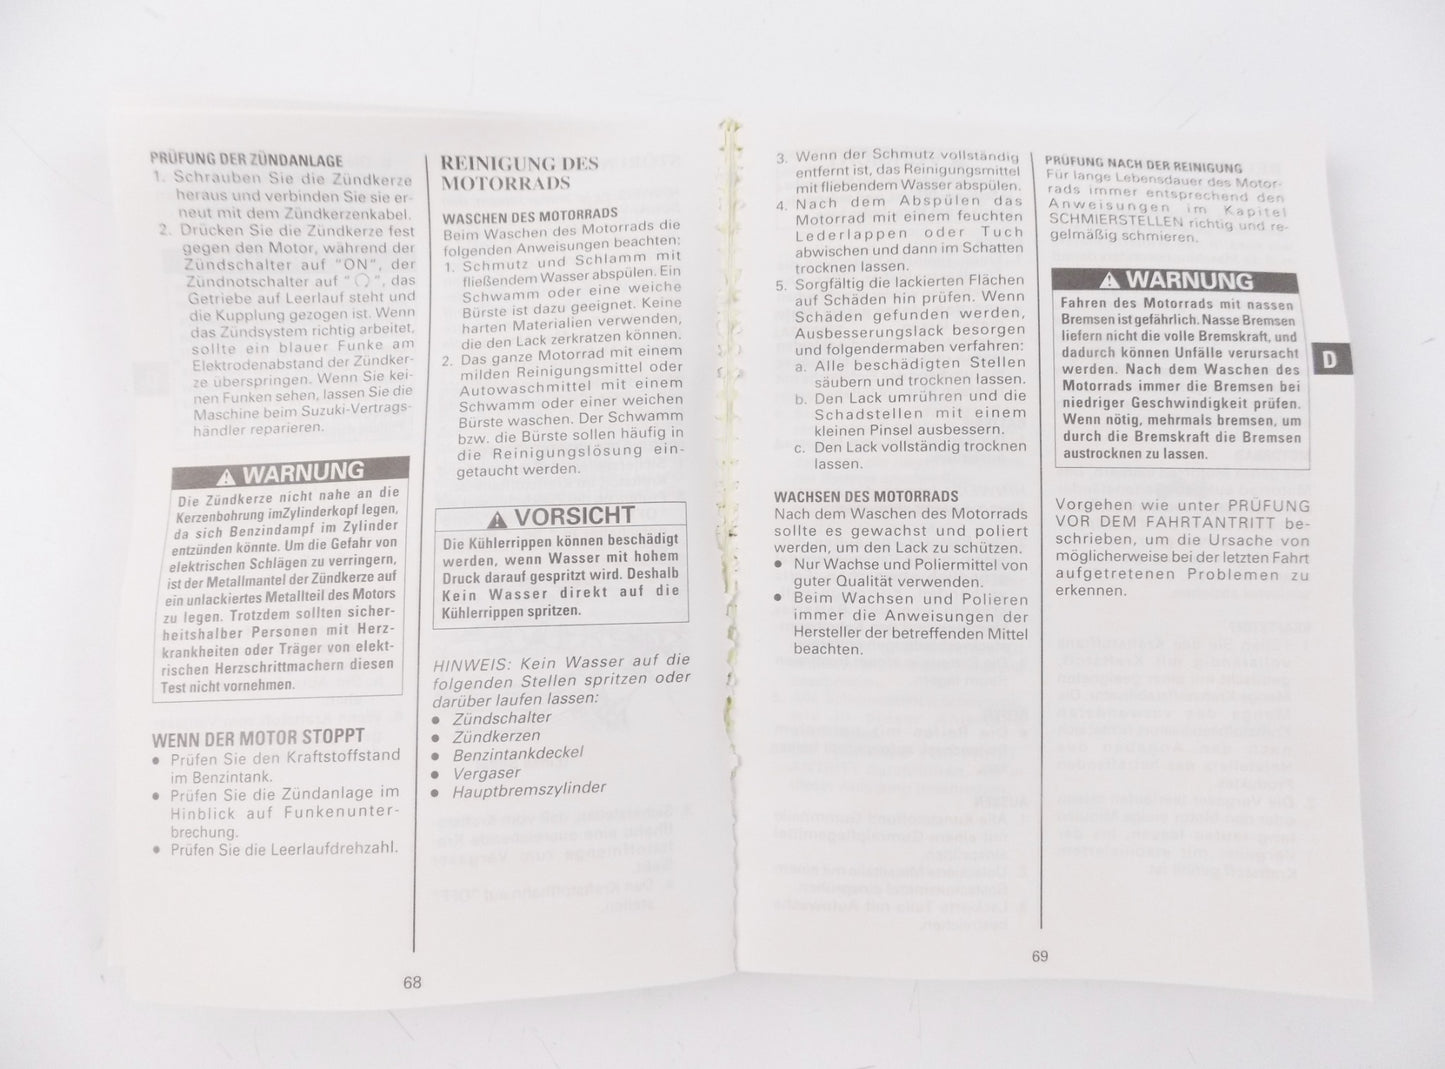 PRÜFUNG DER ZÜNDANLAGE
1. Schrauben Sie die Zündkerze
heraus und verbinden Sie sie er-
neut mit dem Zündkerzenkabel.
2. Drücken Sie die Zündkerze fest
gegen den Motor, während der
Zündschalter auf "ON", der
Zündnotschalter auf "◯", das
Getriebe auf Leerlauf steht und
die Kupplung gezogen ist. Wenn
das Zündsystem richtig arbeitet,
sollte ein blauer Funke am
Elektrodenabstand der Zündker-
ze überspringen. Wenn Sie kei-
nen Funken sehen, lassen Sie die
Maschine beim Suzuki-Vertrags-
händler reparieren.
⚠ WARNUNG
Die Zündkerze nicht nahe an die
Kerzenbohrung imZylinderkopf legen,
da sich Benzindampf im Zylinder
entzünden könnte. Um die Gefahr von
elektrischen Schlägen zu verringern,
ist der Metallmantel der Zündkerze auf
ein unlackiertes Metallteil des Motors
zu legen. Trotzdem sollten sicher-
heitshalber Personen mit Herz-
krankheiten oder Träger von elekt-
rischen Herzschrittmachern diesen
Test nicht vornehmen.
WENN DER MOTOR STOPPT
● Prüfen Sie den Kraftstoffstand
im Benzintank.
● Prüfen Sie die Zündanlage im
Hinblick auf Funkenunter-
brechung.
● Prüfen Sie die Leerlaufdrehzahl.
REINIGUNG DES
MOTORRADS
WASCHEN DES MOTORRADS
Beim Waschen des Motorrads die
folgenden Anweisungen beachten:
1. Schmutz und Schlamm mit
fließendem Wasser abspülen. Ein
Schwamm oder eine weiche
Bürste ist dazu geeignet. Keine
harten Materialien verwenden,
die den Lack zerkratzen können.
2. Das ganze Motorrad mit einem
milden Reinigungsmittel oder
Autowaschmittel mit einem
Schwamm oder einer weichen
Bürste waschen. Der Schwamm
bzw. die Bürste sollen häufig in
die Reinigungslösung ein-
getaucht werden.
⚠ VORSICHT
Die Kühlerrippen können beschädigt
werden, wenn Wasser mit hohem
Druck darauf gespritzt wird. Deshalb
Kein Wasser direkt auf die
Kühlerrippen spritzen.
HINWEIS: Kein Wasser auf die
folgenden Stellen spritzen oder
darüber laufen lassen:
● Zündschalter
● Zündkerzen
● Benzintankdeckel
● Vergaser
● Hauptbremszylinder
68
3. Wenn der Schmutz vollständig
entfernt ist, das Reinigungsmittel
mit fliebendem Wasser abspülen.
4. Nach dem Abspülen das
Motorrad mit einem feuchten
Lederlappen oder Tuch
abwischen und dann im Schatten
trocknen lassen.
5. Sorgfältig die lackierten Flächen
auf Schäden hin prüfen. Wenn
Schäden gefunden werden,
Ausbesserungslack besorgen
und folgendermaben verfahren:
a. Alle beschädigten Stellen
säubern und trocknen lassen.
b. Den Lack umrühren und die
Schadstellen mit einem
kleinen Pinsel ausbessern.
c. Den Lack vollständig trocknen
lassen.
WACHSEN DES MOTORRADS
Nach dem Waschen des Motorrads
sollte es gewachst und poliert
werden, um den Lack zu schützen.
● Nur Wachse und Poliermittel von
guter Qualität verwenden.
● Beim Wachsen und Polieren
immer die Anweisungen der
Hersteller der betreffenden Mittel
beachten.
PRÜFUNG NACH DER REINIGUNG
Für lange Lebensdauer des Motor-
rads immer entsprechend den
Anweisungen im Kapitel
SCHMIERSTELLEN richtig und re-
gelmäßig schmieren.
⚠ WARNUNG
Fahren des Motorrads mit nassen
Bremsen ist gefährlich. Nasse Bremsen
liefern nicht die volle Bremskraft, und
dadurch können Unfälle verursacht
werden. Nach dem Waschen des
Motorrads immer die Bremsen bei
niedriger Geschwindigkeit prüfen.
Wenn nötig, mehrmals bremsen, um
durch die Bremskraft die Bremsen
austrocknen zu lassen.
Vorgehen wie unter PRÜFUNG
VOR DEM FAHRTANTRITT be-
schrieben, um die Ursache von
möglicherweise bei der letzten Fahrt
aufgetretenen Problemen zu
erkennen.
D
69